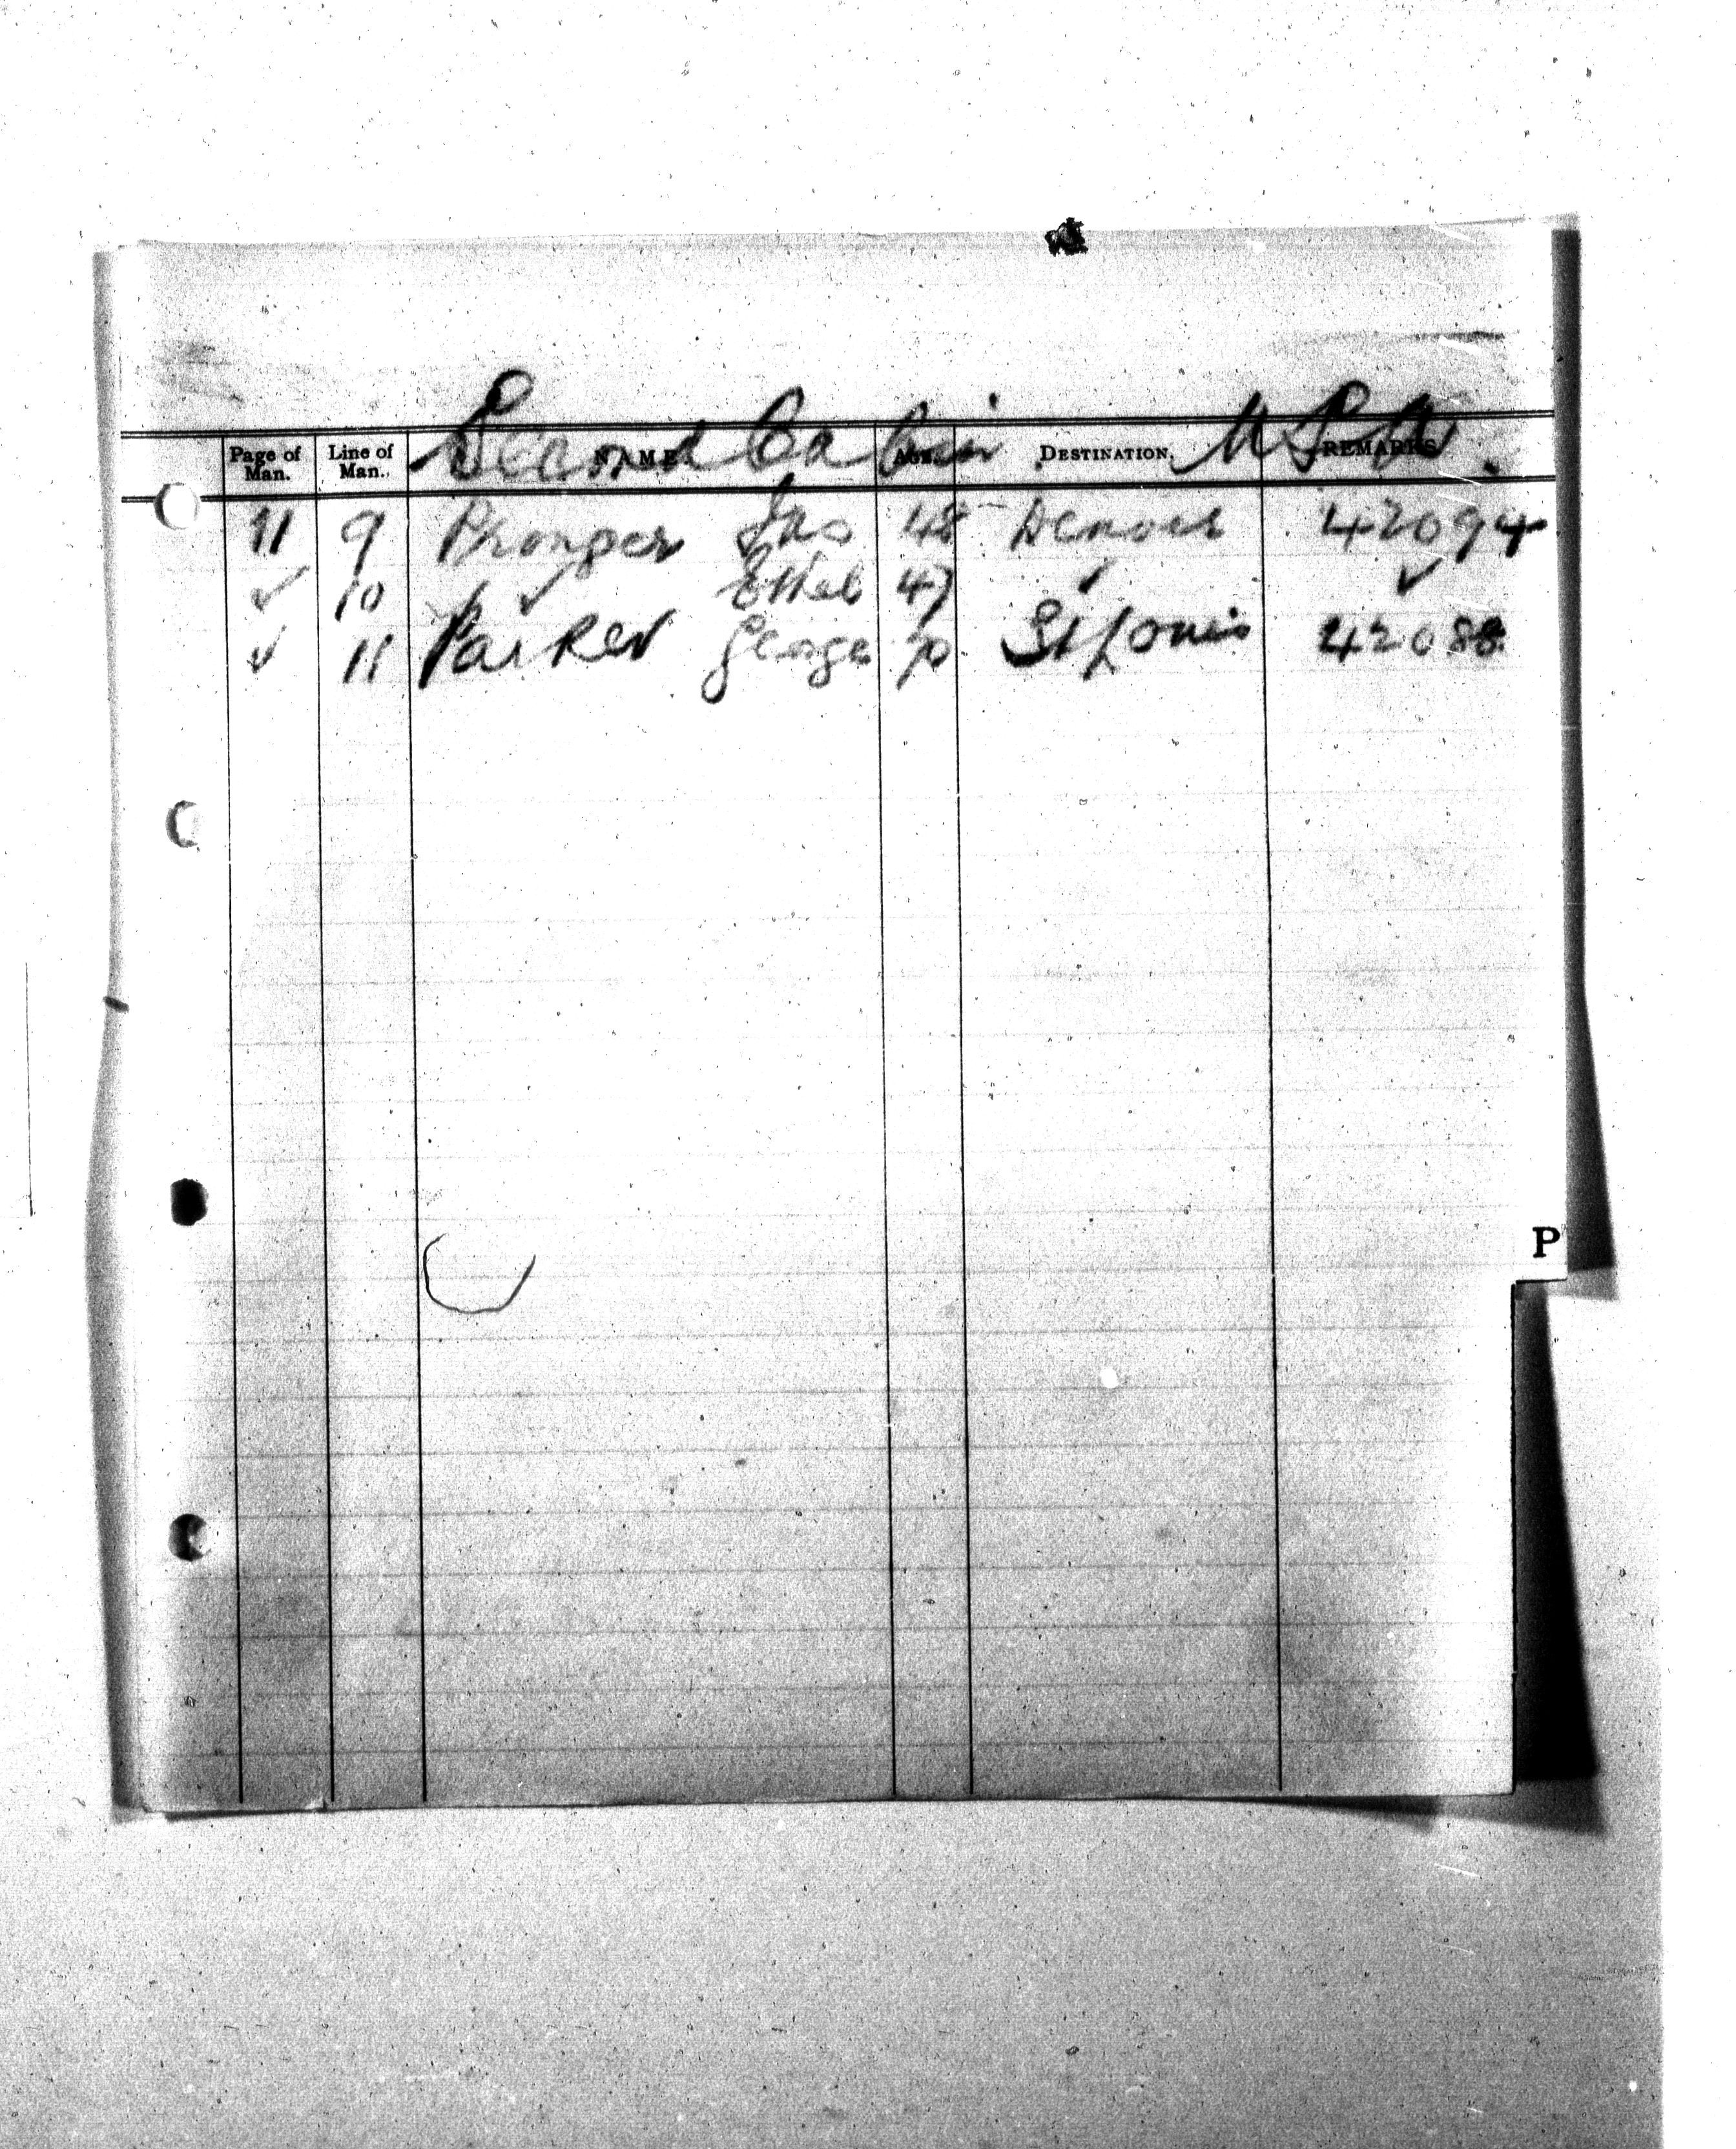 Second Cabin U.S.A.
Page of Man. Line of Man. NAME. AGE. DESTINATION. REMARKS
11 9 Pronger Jno 48 Denver 42094
✓ 10 ✓ Ethel 47 ✓ ✓
✓ 11 Parker George 70 St Louis 42088
P